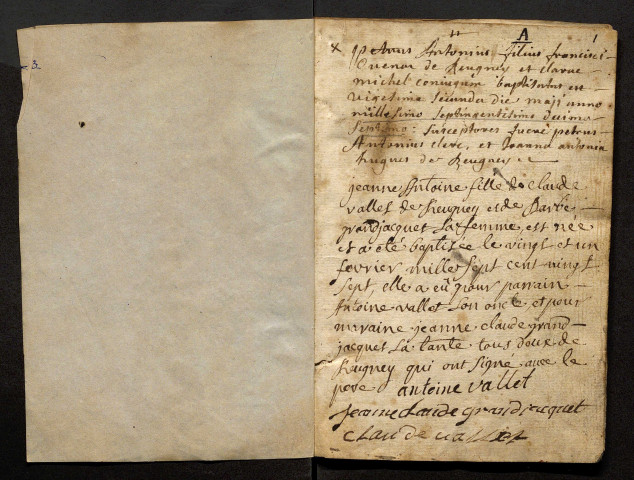 3
A
1
petrus Antonius filius francisci
Cuenot de Reugney et clarae
michel coniugum baptisatus est
vigesima secunda die maji anno
millesimo septingentesimo decimo
septimo: susceptores fuere petrus
Antonius clerc, et Joanna antonia
hugues de Reugney
jeanne Antoine fille de claude
vallet de Reugney et de Barbe
grandjacquet sa femme est née
et a eté baptisée le vingt et un
fevrier mille sept cent vingt
sept, elle a eü pour parrain
Antoine vallet son oncle et pour
maraine jeanne claude grand-
jacquet sa tante tous deux de
Reugney qui ont signé avec le
pere antoine vallet
jeanne claude grandjacquet
claude vallet